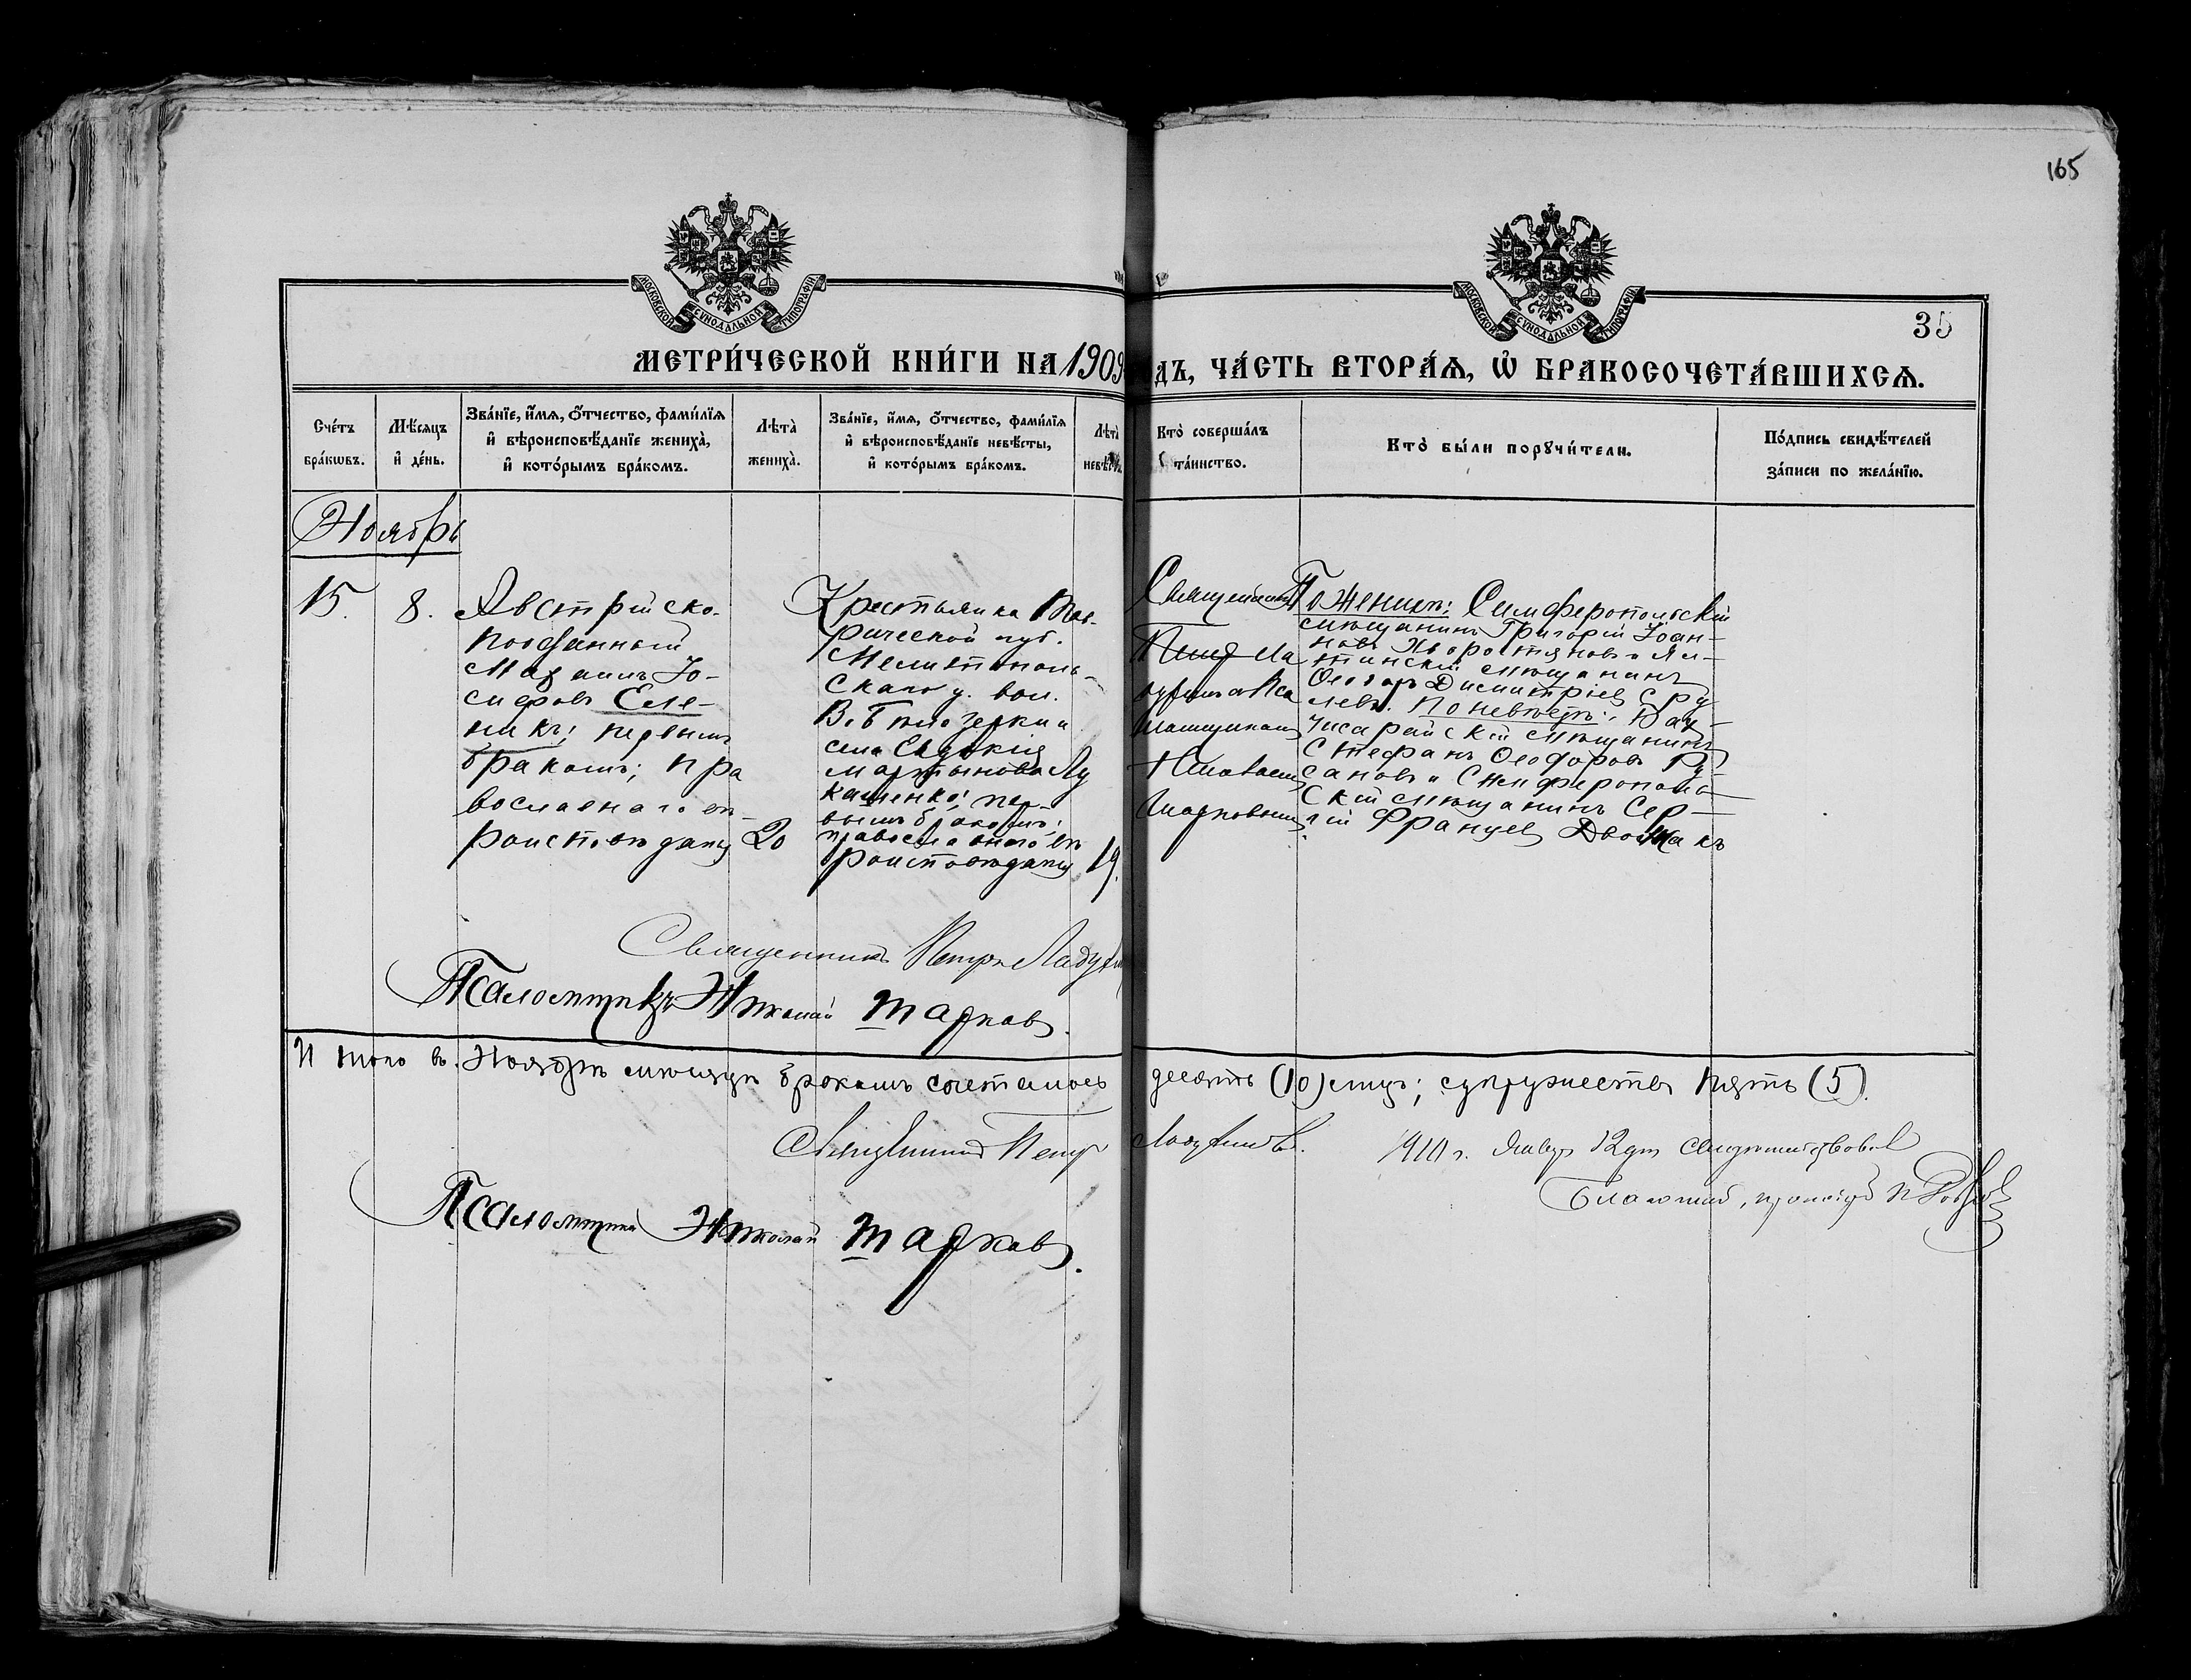 165
МОСКОВСКОЙ СѴНОДАЛЬНОЙ ТИПОГРАФІИ
МОСКОВСКОЙ СѴНОДАЛЬНОЙ ТИПОГРАФІИ
35
МЕТРИ́ЧЕСКОЙ КНИ́ГИ НА 1909
ДЪ, ЧА́СТЬ ВТОРА́Ѧ, Ѽ БРАКОСОЧЕТА́ВШИХСѦ.
Сче́тъ
бра́кωвъ.
Мѣ́сяцъ
и҆ де́нь.
Зва́нїе, и҆́мѧ, ѻ҆́тчество, фами́лїѧ
и҆ вѣроисповѣ́данїе жениха̀,
и҆ кото́рымъ бра́комъ.
Лѣта̀
жениха̀.
Зва́нїе, и҆́мѧ, ѻ҆́тчество, фами́лїѧ
и҆ вѣроисповѣ́данїе невѣ́сты,
и҆ кото́рымъ бра́комъ.
Лѣта̀
невѣ́
Кто̀ соверша́лъ
та́инство.
Кто̀ бы́ли порꙋчи́тели.
По́дпись свидѣ́телей
за́писи по жела́нїю.
Ноябрь
15.
8.
Австрійско-
подданный
Іо-
сифовъ Еле-
никъ; первымъ
бракомъ; пра
вославнаго вѣ-
роисповѣданія
20
Крестьянка Тав-
рической губ.
Мелитополь-
скаго у. вол.
В. Бѣлозерки и
села Евдокія
Мартынова Лу
кашенко; пер-
вымъ бракомъ;
православнаго вѣ
роисповѣданія
19.
Священникъ
Петръ Ла
духинъ и Пса
ломщикомъ
Николаемъ
Марковымъ
По женихѣ: Симферопольскій
мѣщанинъ Григорій Іоан-
новъ Хворостяновъ и Ял-
тинскій мѣщанинъ
Ѳеодоръ Димитріевъ Сру
левъ. По невѣстѣ: Бах-
чисарайскій мѣщанинъ
Стефанъ Ѳеодоровъ Ру-
сановъ и Симферополь-
скій мѣщанинъ Сер-
гій Францевъ Двожакъ
Священникъ Петръ
Псаломщикъ Николай Марковъ.
И того въ Ноябрѣ мѣсяцѣ бракомъ сочеталось
десять (10) лицъ; супружествъ пять (5).
Священникъ Петръ
1910 г. Январ 12 дня свидѣтельствовалъ
Псаломщикъ Николай Марковъ.